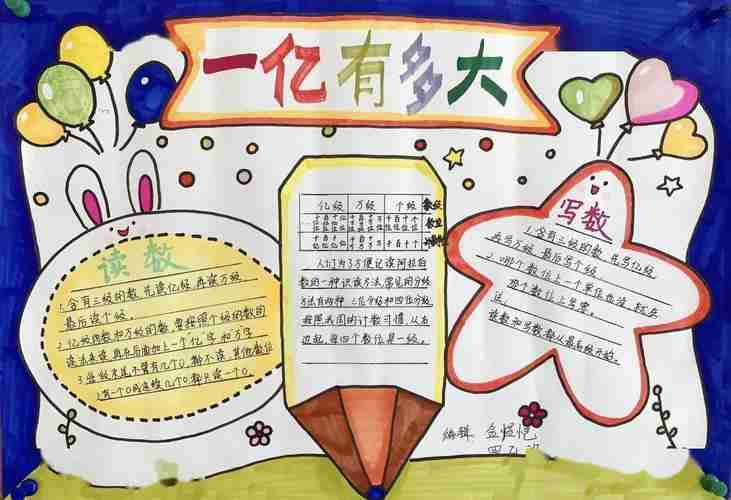 一亿有多大
读数
1.含有三级的数,先读亿级,再读万级,
最后读个级。
2.亿级的数和万级的数,要按照个级的数的
读法来读,再在后面加上一个亿字和万字
3.每级末尾不管有几个0,都不读,其他数位
上有一个0或连续几个0,都只读一个0。
亿级 万级 个级 数级
数位
人们为了方便记读阿拉伯
数的一种识读方法,常见的分级
方法有两种,三位分级和四位分级
按照我国的计数习惯,从右
边起,每四个数位是一级。
写数
1.含有三级的数,先写亿级,
再写万级,最后写个级。
2.哪个数位上一个单位也没有,就在
哪个数位上写零。
读数和写数都从最高级开始。
编辑